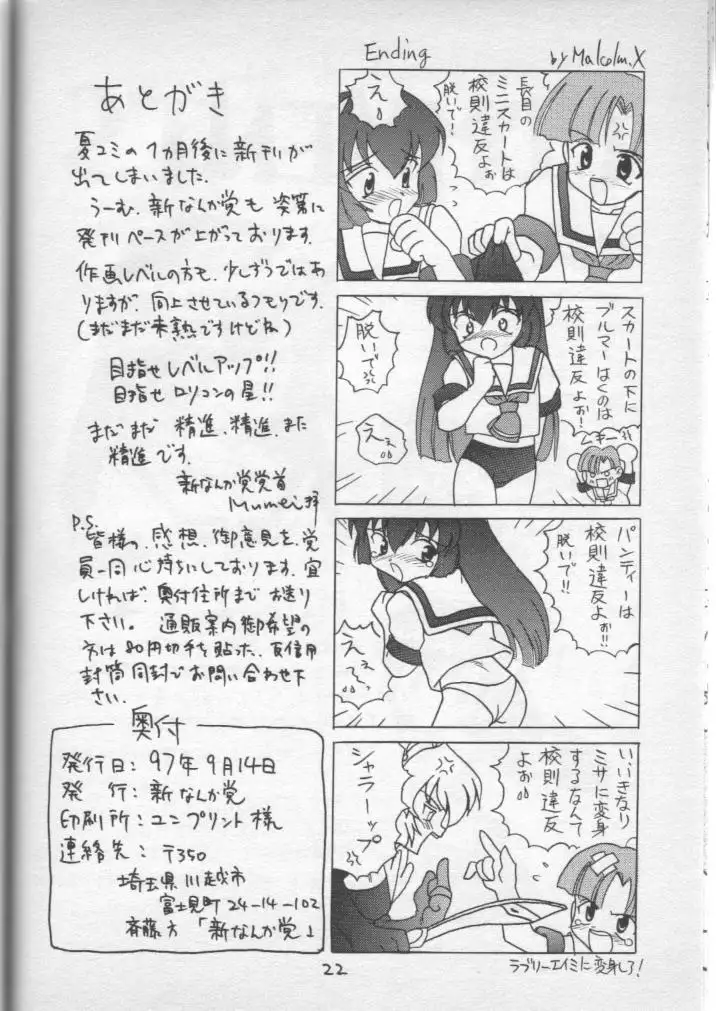 Ending
by Malcolm.X
長目の
ミニスカートは
校則違反よぉ
脱いで！
え
スカートの下に
ブルマーはくのは
校則違反よぉ！
脱いで
ムキー
ええ
パンティーは
校則違反よぉ！！
脱いで！！
ええ〜
いいきなり
ミサに変身
するなんて
校則違反
よぉ
シャラーップ
ラブリーエイミに変身しろ！
あとがき
夏コミの1ヵ月後に新刊が
出てしまいました。
うーむ、新なんか党も 次第に
発刊ペースが上がっております。
作画レベルの方も、少しずつではあ
りますが、向上させているつもりです。
（まだまだ未熟ですけどね）
目指せ レベルアップ！！
目指せ ロリコンの星！！
まだまだ 精進、精進、また
精進です。
新なんか党党首
Mumei
P.S.
皆様の、感想、御意見を、党
員一同心待ちにしております。宜
しければ、奥付住所まで お送り
下さい。 通販案内御希望の
方は 80円切手を貼った、返信用
封筒同封でお問い合わせ下
さい。
奥付
発行日：97年9月14日
発 行：新なんか党
印刷所：ユニプリント様
連絡先：〒350
埼玉県川越市
富士見町24-14-102
斉藤方「新なんか党」
22